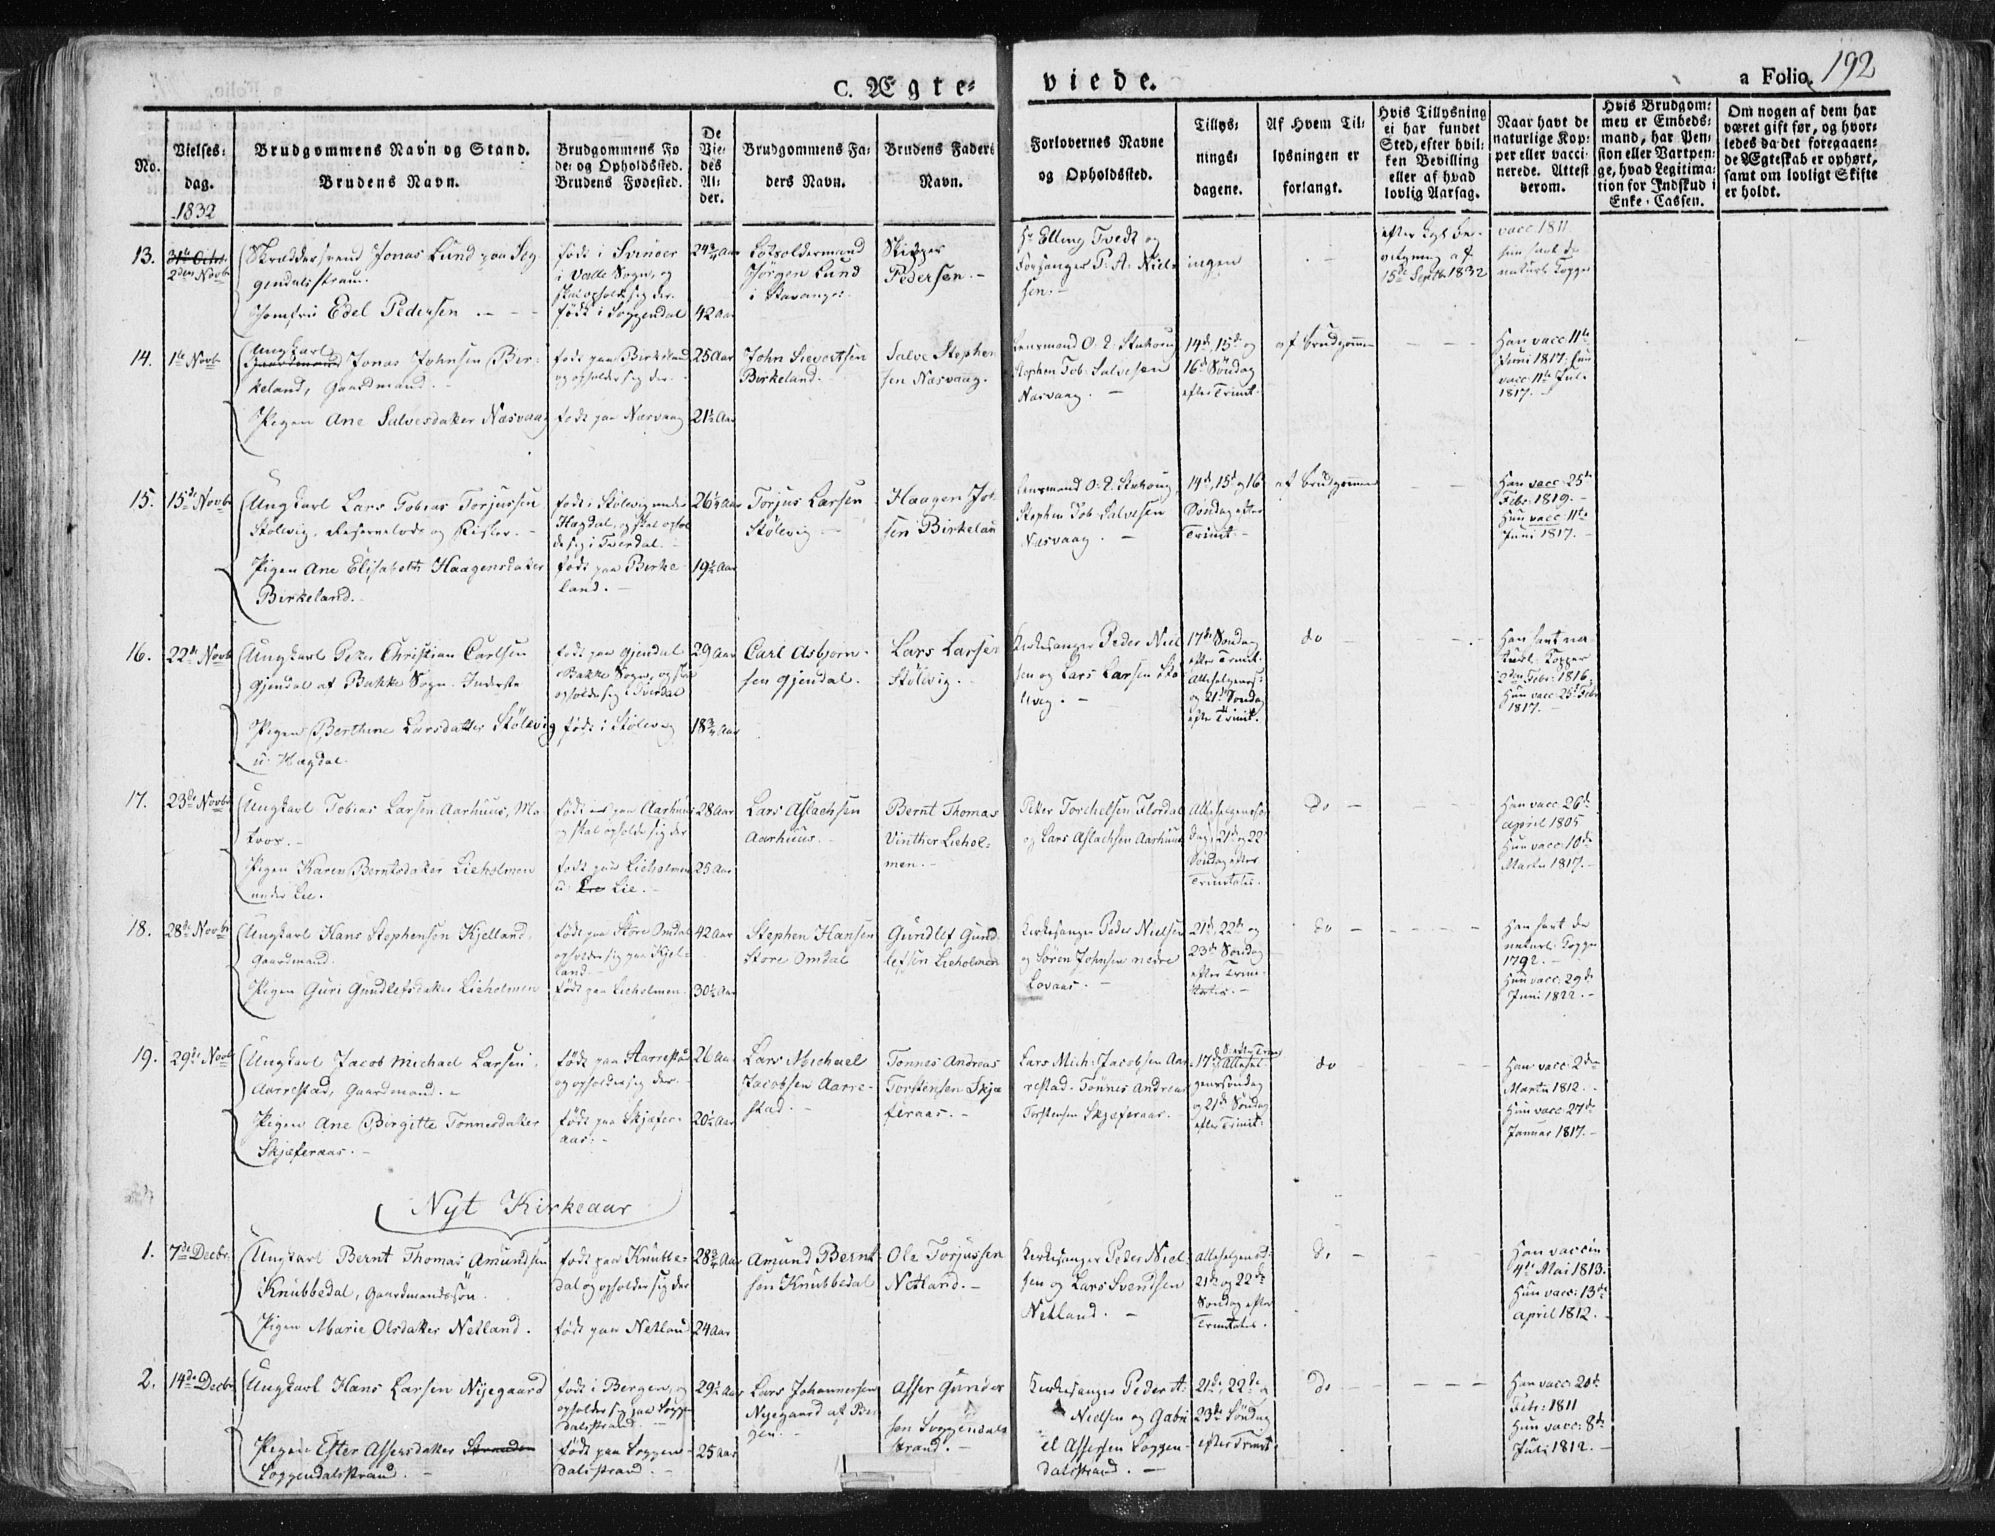 C. Ægte-
viede.
a Folio. 192
No.
Vielses-
dag.
1832
Brudgommens Navn og Stand.
Brudens Navn.
Brudgommens Fø
de- og Opholdssted.
Brudens Fødested.
De
Vie-
des
Al-
der.
Brudgommens Fa-
ders Navn.
Brudens Faders
Navn.
Forlovernes Navne
og Opholdssted.
Tillys-
nings-
dagene.
Af Hvem Til-
lysningen er
forlangt.
Hvis Tillysning
ei har fundet
Sted, efter hvil-
ken Bevilling
eller af hvad
lovlig Aarsag.
Naar havt de
naturlige Kop-
per eller vacci-
nerede. Attest
derom.
Hvis Brudgom-
men er Embeds-
mand, har Pen-
sion eller Vartpen-
ge, hvad Legitima-
tion for Indskud i
Enke-Cassen.
Om nogen af dem har
været gift før, og hvor-
ledes da det foregaaen-
de Ægteskab er ophørt,
samt om lovligt Skifte
er holdt.
13.
2den Novb
Skræddersvend Jonas Lund paa Sog
gendalsstrand.
Jomfru Edel Pedersen
født i Svinøer
i Valle Sogn, og
skal opholde sig der.
født i Soggendal
24 3/4 Aar
42 Aar
Lodsoldermand
Jørgen Lund
i Stavanger
Skipper
Pedersen.
Hr Elling Tvedt og
Forsanger P. A. Niel-
sen.
ingen
efter Kgl. Be-
vilgning af
15de Septb 1832
vacc. 1811
hun havt de
naturl. Kopper
14.
1te Novb
Ungkarl
Jonas Johnsen Bir-
keland, Gaardmand.
Pigen Ane Salvesdatter Næsvaag
født paa Birkeland
og opholder sig der.
født paa Næsvaag
25 Aar
21½ Aar
John Sievertsen
Birkeland.
Salve Stephen
sen Næsvaag.
Lensmand O. E.
Stephen Tob. Salvesen
Næsvaag.
14de, 15de og
16de Søndag
efter Trinit.
af Brudgommen
Han vacc. 11te
Juni 1817. hun
vacc. 11te Juli
1817.
15.
15de Novb
Ungkarl Lars Tobias Torjussen
Stølevig, Reservelods og Fisker.
Pigen Ane Elisabeth Haagensdatter
Birkeland.
født i Stølevig under
Hægdal, og skal ophol
de sig i Tverdal.
født paa Birke
land.
26½ Aar
19½ Aar
Torjus Larsen
Stølevig
Haagen Joh
sen Birkeland
Lensmand O. E.
Stephen Tob. Salvesen
Næsvaag.
14de, 15de og 16de
Søndag efter
Trinit.
af Brudgommen
Han vacc. 25de
Febr. 1819.
Hun vacc. 11te
Juni 1817.
16.
22de Novb
Ungkarl Peter Christian Carlsen
Gjendal af Bakke Sogn. Inderste
Pigen Berthine Larsdatter Stølevig
u. Hægdal.
født paa Gjendal
Bakke Sogn, og skal
opholde sig i Tverdal
født i Stølevig
29 Aar
18¾ Aar
Carl Asbjørn-
sen Gjendal.
Lars Larsen
Stølevig.
Kirkesanger Peder Niel
sen og Lars Larsen Stø
levig.
17de Søndag
efter Trinit.
Allehelgens-
og 21de Søndag
efter Trinit.
do
Han havt na-
turl. Kopper
2den Febr. 1816.
Hun vacc. 25de Febr.
1817.
17.
23de Novb
Ungkarl Tobias Larsen Aarhuus, Ma-
tros.
Pigen Karen Berntsdatter Lieholmen
under Lie.
født paa Aarhuus
og skal opholde sig der
født paa Lieholmen
u. Lie.
28 Aar
25 Aar
Lars Aslachsen
Aarhuus.
Bernt Thomas
Vinther Liehol-
men.
Peter Torchelsen Flordal
og Lars Aslachsen Aarhuus
Allehelgenssøn
dag, 21de og 22de
Søndag efter
Trinitatis.
do
Han vacc. 26de
April 1805
Hun vacc. 10de
Marts 1817.
18.
28de Novb
Ungkarl Hans Stephensøn Kjelland,
Gaardmand.
Pigen Guri Gundlefsdatter Lieholmen
født paa Store Omdal
opholder sig paa Kjel-
land.
født paa Lieholmen.
42 Aar
30½ Aar
Stephen Hansen
Store Omdal
Gundlef Gund
lefsen Lieholmen
Kirkesanger Peder Nielsen
og Søren Johnsen nedre
Lovaas.
21de, 22de og
23de Søndag
efter Trini-
tatis.
do
Han havt de
naturl. Kopper
1792.
Hun vacc. 29de
Juni 1822.
19.
29de Novb
Ungkarl Jacob Michael Larsen
Aarrestad, Gaardmand.
Pigen Ane Birgitte Tønnesdatter
Skjæferaas.
født paa Aarrestad
og opholder sig der.
født paa Skjæfer-
aas.
26 Aar
20½ Aar
Lars Michael
Jacobsen Aarre-
stad.
Tønnes Andreas
Torstensen Skjæ
feraas.
Lars Mich. Jacobsen Aar-
restad. Tønnes Andreas
Torstensen Skjæferaas.
17de S. efter Trinit
Allehel-
genssøndag
og 21de Søndag
efter Trinit.
do
Han vacc. 2den
Marts 1812.
Hun vacc. 27de
Januar 1817.
Nyt Kirkeaar
1.
7de Decbr.
Ungkarl Bernt Thomas Amundsen
Knubbedal, Gaardmandssøn.
Pigen Marie Olsdatter Netland.
født paa Knubbe-
dal og opholder sig der
født paa Netland
28¾ Aar
24 Aar
Amund Bernt
sen Knubbedal
Ole Torjussen
Netland.
Kirkesanger Peder Niel-
sen og Lars Svendsen
Netland.
Allehelgensd.
21de og 22de
Søndag efter
Trinitatis.
do
Han vaccin
4de Mai 1813.
Hun vacc. 13de
April 1812.
2.
14de Decbr
Ungkarl Hans Larsen Nyegaard
Pigen Ester Assersdatter
Soggendalsstrand.
født i Bergen, og
opholder sig paa Soggen
dalsstrand.
født paa Soggen-
dalsstrand.
29½ Aar
25 Aar
Lars Johannesen
Nyegaard af Ber
gen.
Asser Gunder
sen Soggendals
strand.
Kirkesanger Peder A.
Nielsen og Gabri
el Assersen Soggen-
dalsstrand.
21de, 22de og
23de Søndag
efter Trinit.
do
Han vacc. 20de
Febr. 1811
Hun vacc. 8de
Juli 1812.